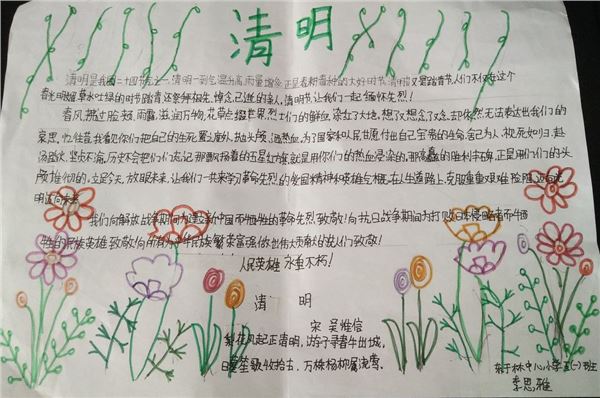 清明
清明是我国二十四节气之一,清明一到气温升高,雨量增多,正是春耕春种的大好时节,清明节又是踏青节,人们不仅在这个
春光明媚草木吐绿的时节踏青还祭拜祖先,悼念已逝的亲人,清明节,让我们一起缅怀先烈!
春风,拂过脸颊,雨露,滋润万物,花草点缀世界,烈士们的鲜血,染红了大地,想了又想念了又念,却依然无法表达出我们的
哀思,忆往昔,我看见你们把自己的生死置之度外,抛头颅,洒热血,为了国家和人民甘愿付出自己宝贵的生命,舍己为人,视死如归,赴
汤蹈火,坚贞不渝,历史不会把你们忘记,那飘扬着的五星红旗就是用你们的热血浸染的,那高矗的胜利丰碑,正是用们们的头
颅堆彻的,立足今天,放眼未来,让我们一共来学习革命先烈的爱国精神和英雄气概,在人生道路上,克服重重艰难险阻,迈向
明
我们向解放战争期间为建立新中国不牺牲的革命先烈致敬!向抗日战争期间为打败日本侵略者不牺
牲的民族英雄致敬!向所有为中华民族繁荣富强做出伟大贡献的人们致敬!
人民英雄永垂不朽!
清 明
宋 吴惟信
梨花风起正清明,游子寻春半出城,
日暮笙歌收拾去,万株杨柳属流莺。
林中心小学五(一)班
李思雅